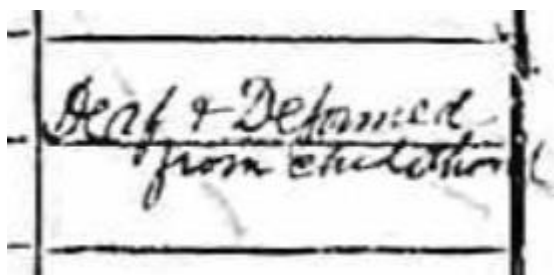 Deaf & Deformed
from childhood